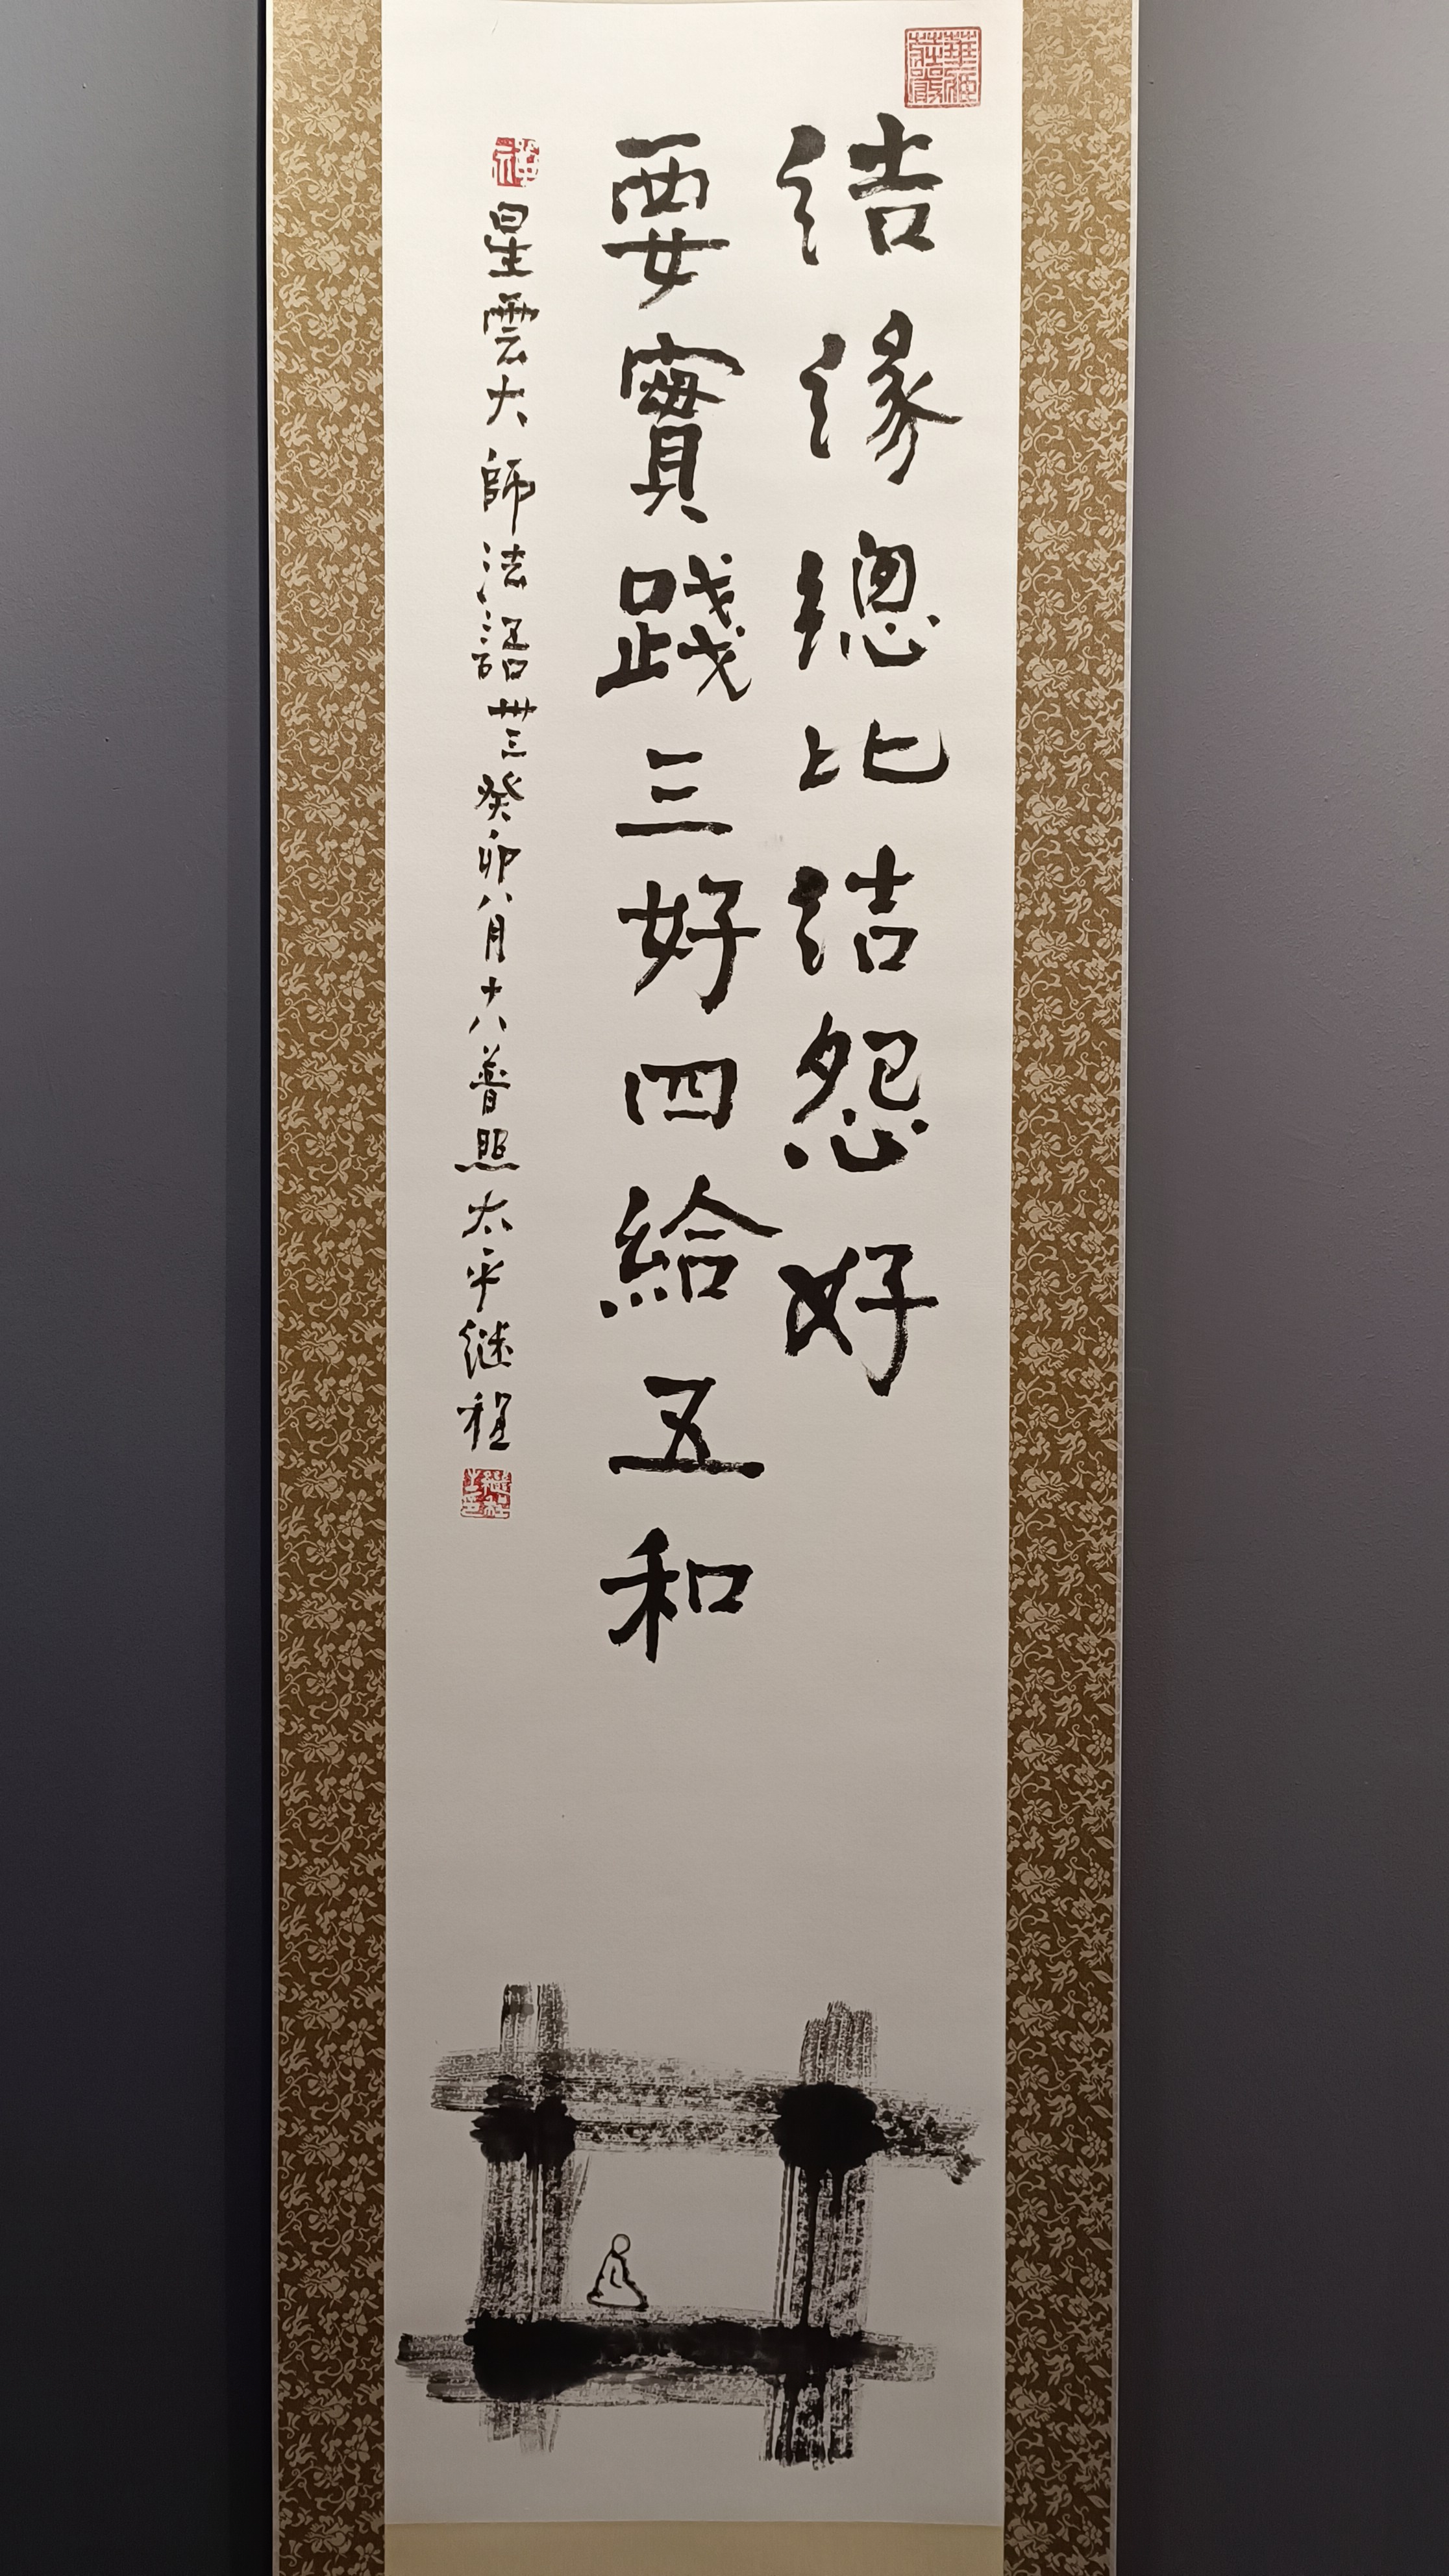 結緣總比結怨好
要實踐三好四給五和
星雲大師法語卅三癸卯八月十八普照太平继程